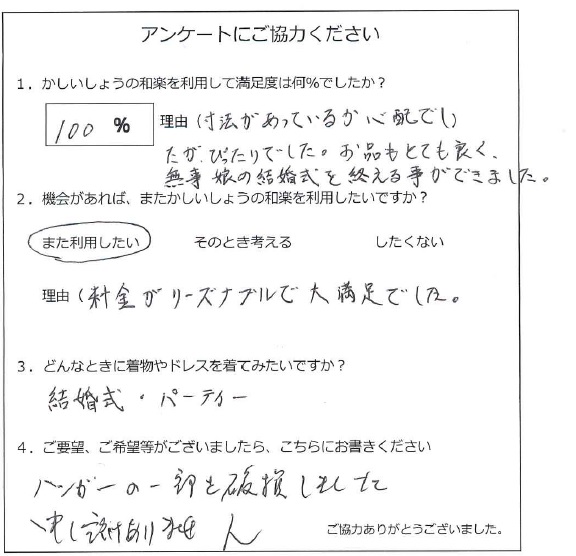 アンケートにご協力ください
1．かしいしょうの和楽を利用して満足度は何%でしたか？
100 % 理由（寸法があっているか心配でし
たが、ぴったりでした。お品もとても良く、
無事娘の結婚式を終える事ができました。
2．機会があれば、またかしいしょうの和楽を利用したいですか？
また利用したい そのとき考える したくない
理由（料金がリーズナブルで大満足でした。
3．どんなときに着物やドレスを着てみたいですか？
結婚式・パーティー
4．ご要望、ご希望等がございましたら、こちらにお書きください
ハンガーの一部を破損しました
申し訳ありません
ご協力ありがとうございました。